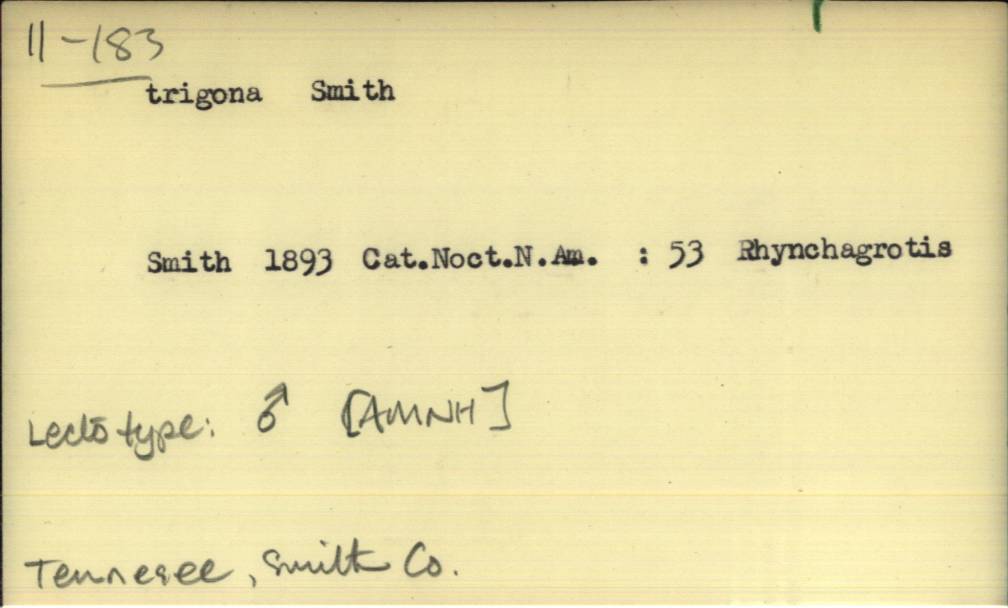 11-183
trigona Smith
Smith 1893 Cat.Noct.N.Am. : 53 Rhynchagrotis
Lectotype: ♂ [AMNH]
Tennesee, Smith Co.